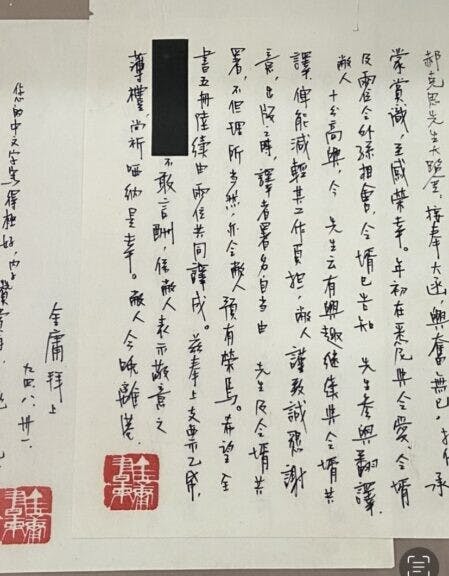 郝克思先生大鑒:接奉大函,興奮無已。拙作承
蒙賞識,至感榮幸。年初在悉尼與令愛、令婿
及兩位令外孫相會,令婿已告知 先生參與翻譯,
敝人十分高興,今 先生云有興趣繼續與令婿共
譯,俾能減輕其工作負擔,敝人謹致誠懇謝
意,出版之時,譯者署名自當由 先生及令婿共
署,不但理所當然,亦令敝人預有榮焉。希望全
書五冊陸續由兩位共同譯成。茲奉上支票乙
不敢言酬,係敝人表示敬意之
薄禮,尚祈哂納是幸。敝人今晚離港,
金庸拜上
九四、八、卅一
您的中文字寫得極好,內子